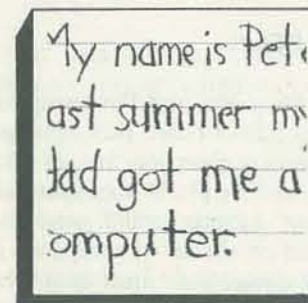 My name is Pet
ast summer m
dad got me a
omputer.